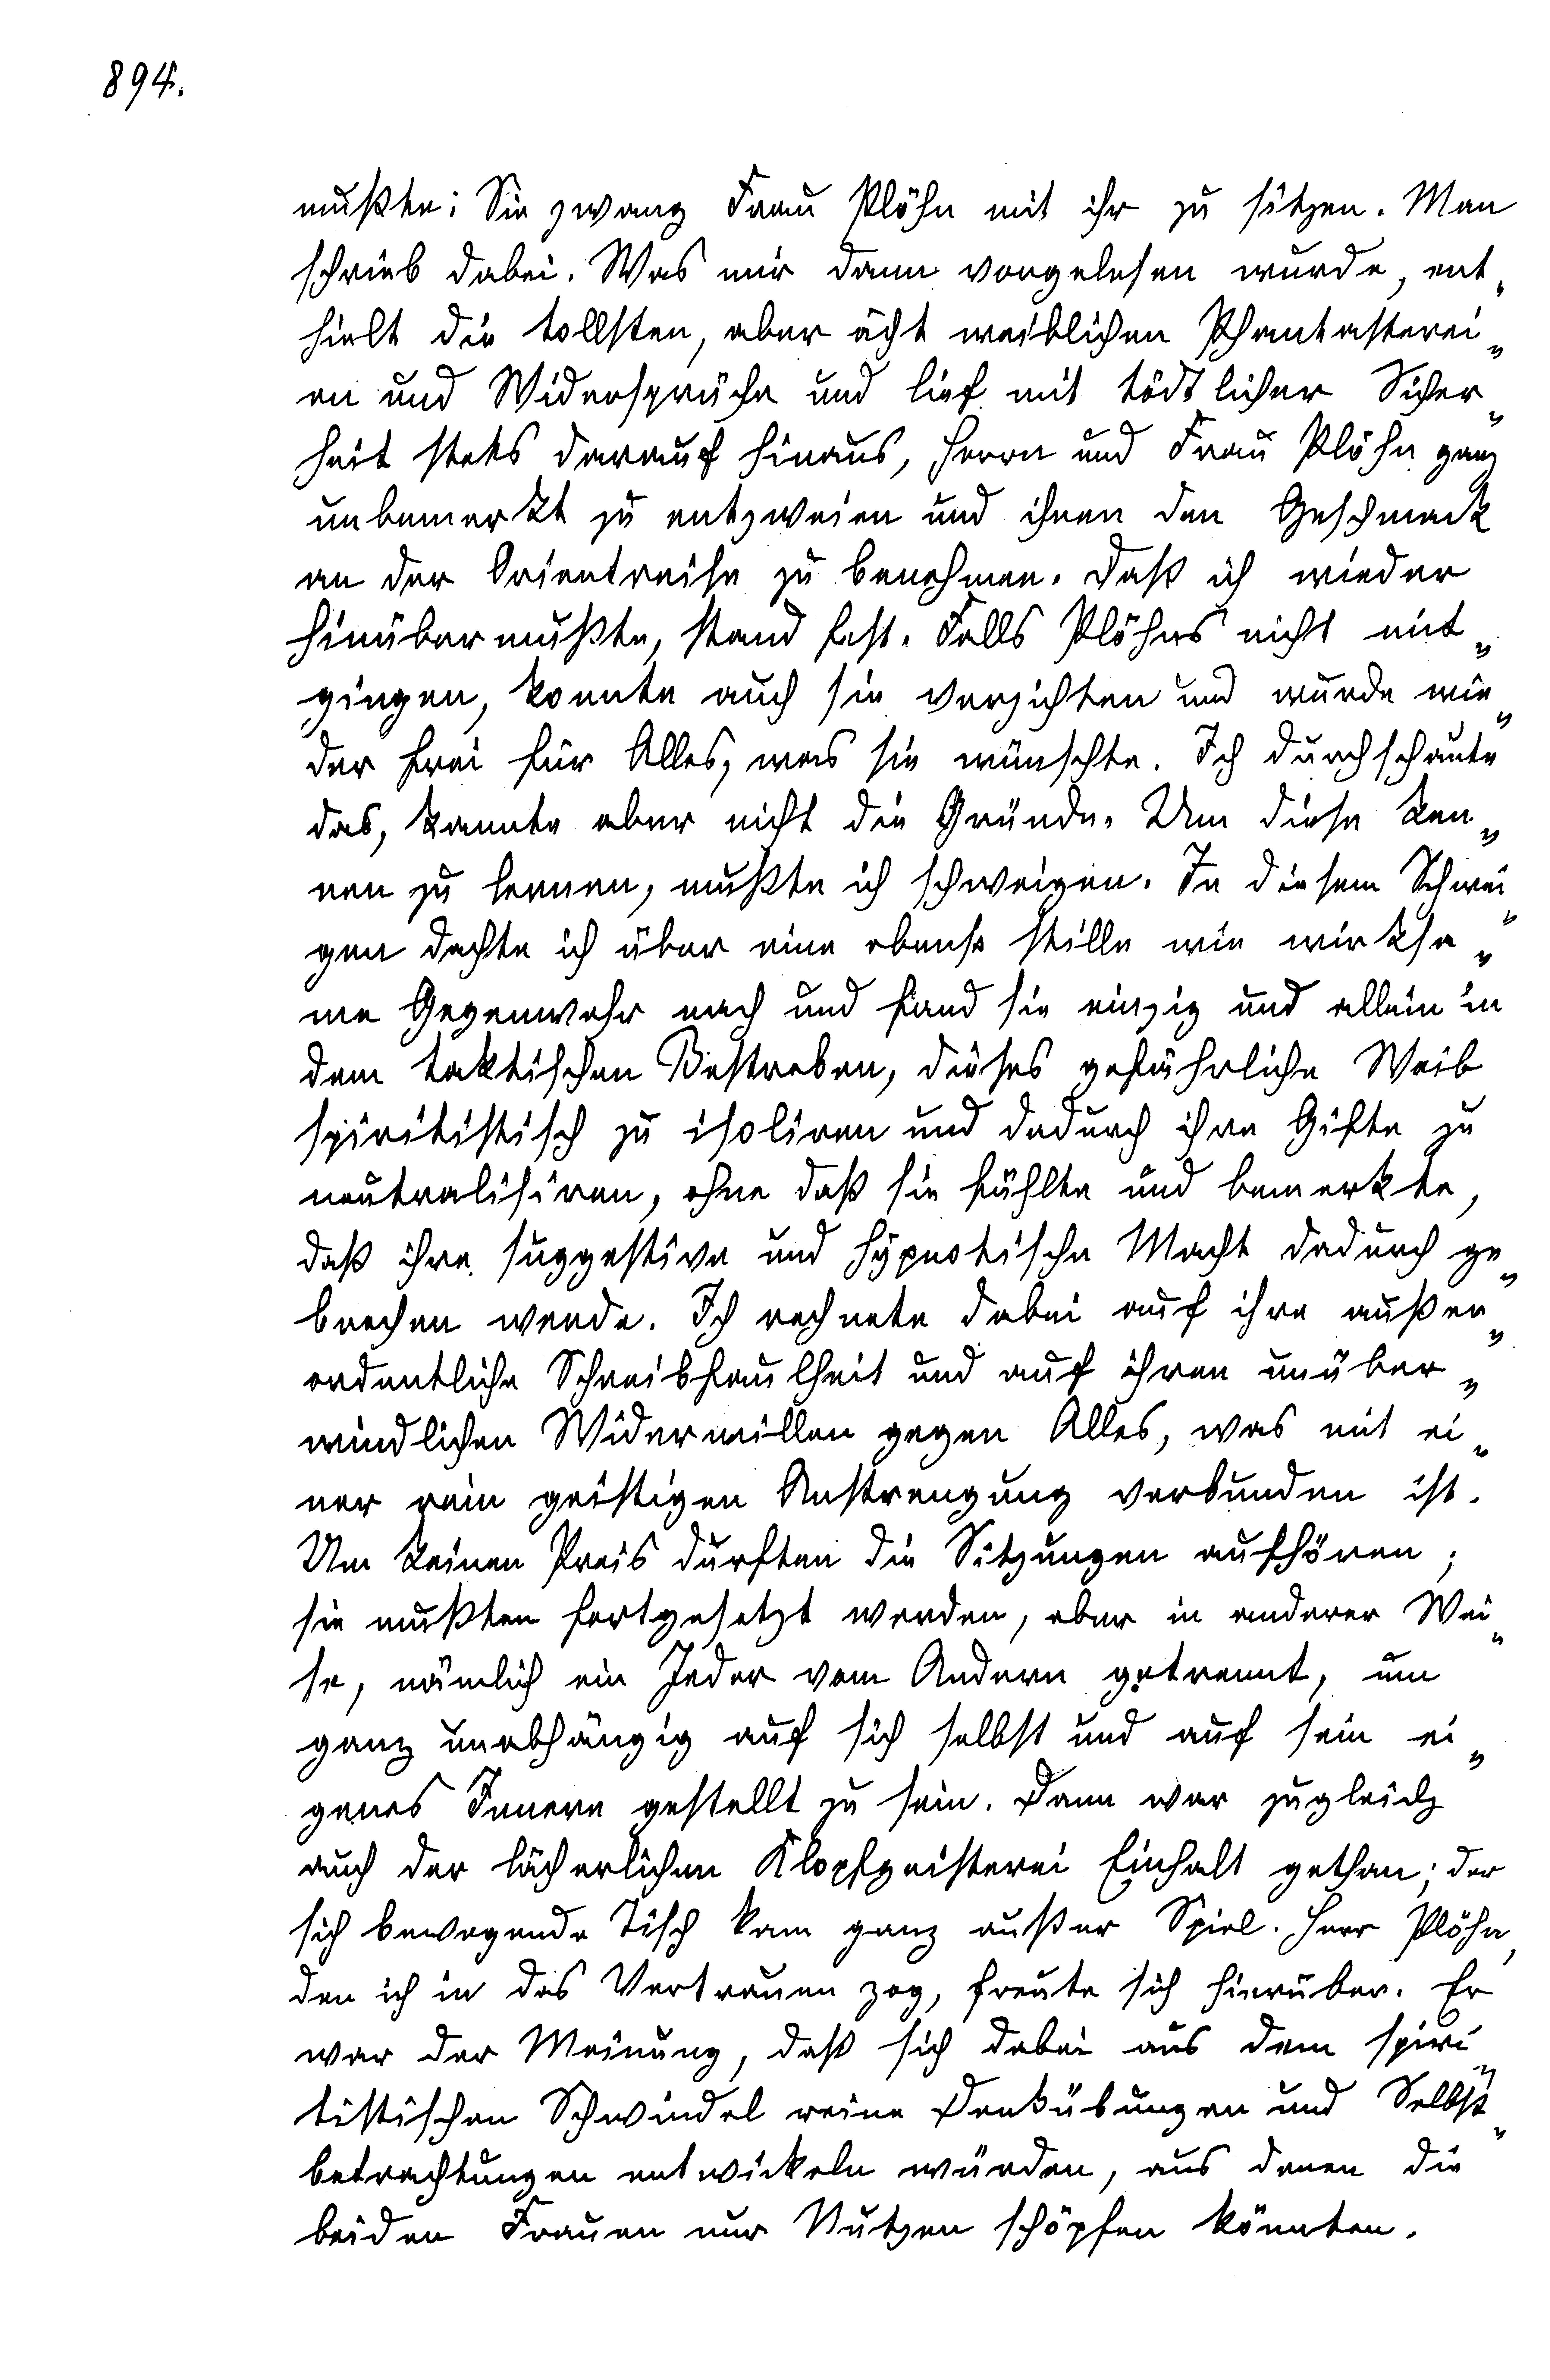 894.
mußte: Sie zwang Frau Plöhn mit ihr zu sitzen. Man
schrieb dabei. Was mir dann vorgelesen wurde, ent„
hielt die tollsten, aber ächt weiblichen Phantasterei„
en und Widersprüche und lief mit tödtlicher Sicher„
heit stets darauf hinaus, Herrn und Frau Plöhn ganz
unbemerkt zu entzweien und ihnen den Geschmack
an der Orientreise zu benehmen. Daß ich wieder
hinübermußte, stand fest. Falls Plöhns nicht mit„
gingen, konnte auch sie verzichten und wurde wie„
der frei für Alles, was sie wünschte. Ich durchschaute
das, kannte aber nicht die Gründe. Um diese ken„
nen zu lernen, mußte ich schweigen. In diesem Schwei„
gen dachte ich über eine ebenso stille wie wirksa„
me Gegenwehr nach und fand sie einzig und allein in
dem taktischen Bestreben, dieses gefährliche Weib
spiritistisch zu isoliren und dadurch ihre Gifte zu
neutralisiren, ohne daß sie fühlte und bemerkte,
daß ihre suggestive und hypnotische Macht dadurch ge„
brochen werde. Ich rechnete dabei auf ihre außer„
ordentliche Schreibfaulheit und auf ihren unüber„
windlichen Widerwillen gegen Alles, was mit ei„
ner rein geistigen Anstrengung verbunden ist.
Um keinen Preis durften die Sitzungen aufhören;
sie mußten fortgesetzt werden, aber in anderer Wei„
se, nämlich ein Jeder vom Andern getrennt, um
ganz unabhängig auf sich selbst und auf sein ei„
genes Innere gestellt zu sein. Dann war zugleich
auch der lächerlichen Klopfgeisterei Einhalt gethan; der
sich bewegende Tisch kam ganz außer Spiel. Herr Plöhn,
den ich in das Vertrauen zog, freute sich hierüber. Er
war der Meinung, daß sich dabei aus dem spiri„
tistischen Schwindel reine Denkübungen und Selbst„
betrachtungen entwickeln würden, aus denen die
beiden Frauen nur Nutzen schöpfen könnten.